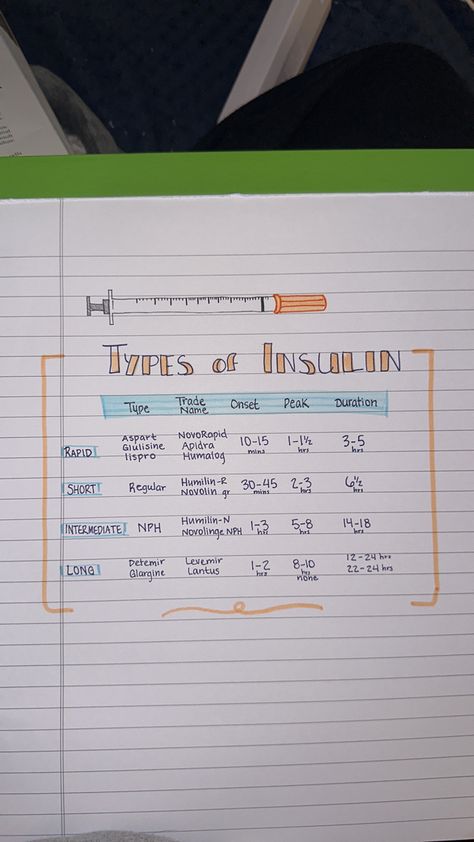 TYPES OF INSULIN
Type Trade Name Onset Peak Duration
RAPID
Aspart NovoRapid 10-15 mins 1-1½ hrs 3-5 hrs
Glulisine Apidra
lispro Humalog
SHORT Regular Humilin-R 30-45 mins 2-3 hrs 6½ hrs
Novolin gr
INTERMEDIATE NPH Humilin-N 1-3 hrs 5-8 hrs 14-18 hrs
Novolinge NPH
LONG
Detemir Levemir 1-2 hrs 8-10 hrs 12-24 hrs
Glargine Lantus none 22-24 hrs